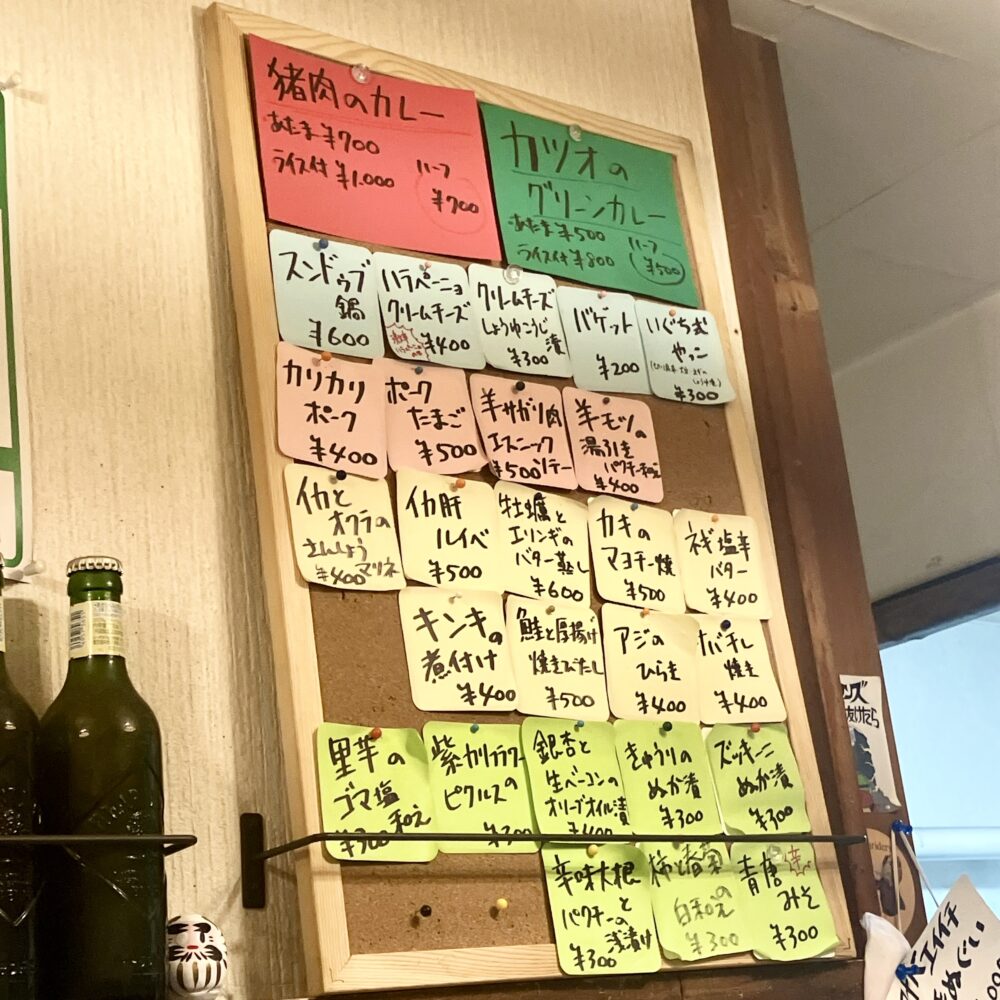 猪肉のカレー
あたま¥700
ライス付¥1.000
ハーフ
¥700
カツオの
グリーンカレー
あたま¥500
ライス付¥800
ハーフ
¥500
スンドゥブ
鍋
¥600
ハラペーニョ
クリームチーズ
¥400
クリームチーズ
しょうゆこうじ
漬
¥300
バゲット
¥200
いぐち式
やっこ
¥300
カリカリ
ポーク
¥400
ポーク
たまご
¥500
羊サガリ肉
エスニック
ソテー
¥500
羊モツの
湯引き
パクチー和え
¥400
イカと
オクラの
さんしょう
マリネ
¥400
イカ肝
ルイベ
¥500
牡蠣と
エリンギの
バター蒸し
¥600
カキの
マヨチー焼
¥500
ネギ塩辛
バター
¥400
キンキの
煮付け
¥400
鮭と厚揚げ
焼きびたし
¥500
アジの
ひらき
¥400
サバチレ
焼き
¥400
里芋の
ゴマ塩
和え
¥300
紫カリフラワー
ピクルスの
¥300
銀杏と
生ベーコンの
オリーブオイル漬
¥400
きゅうりの
ぬか漬
¥300
ズッキーニ
ぬか漬
¥300
辛味大根
と
パクチーの
浅漬け
¥300
柿と春菊
の
白和え
¥300
青唐
みそ
¥300